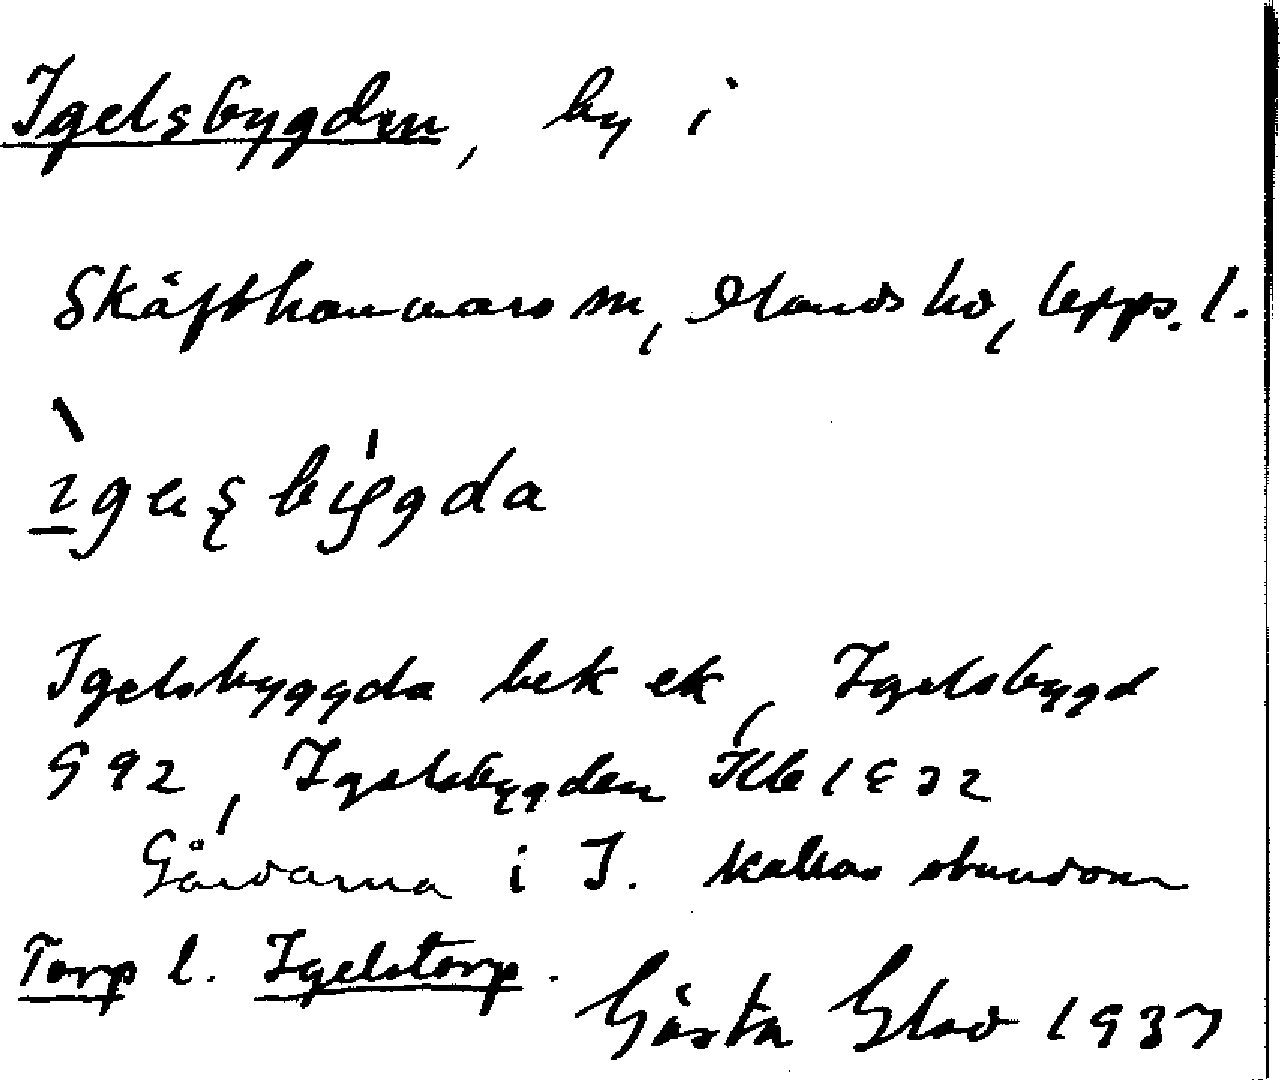 Igelsbygden, by i
Skäfthammars sn, Olands hd, Upps. l.
ìgesbýgda
Igelsbyggda bek ek, Igelsbygd
G 92, Igelsbygden Jb 1832
Gårdarna i I. kallas stundom
Torp l. Igelstorp.
Gösta Glad 1937